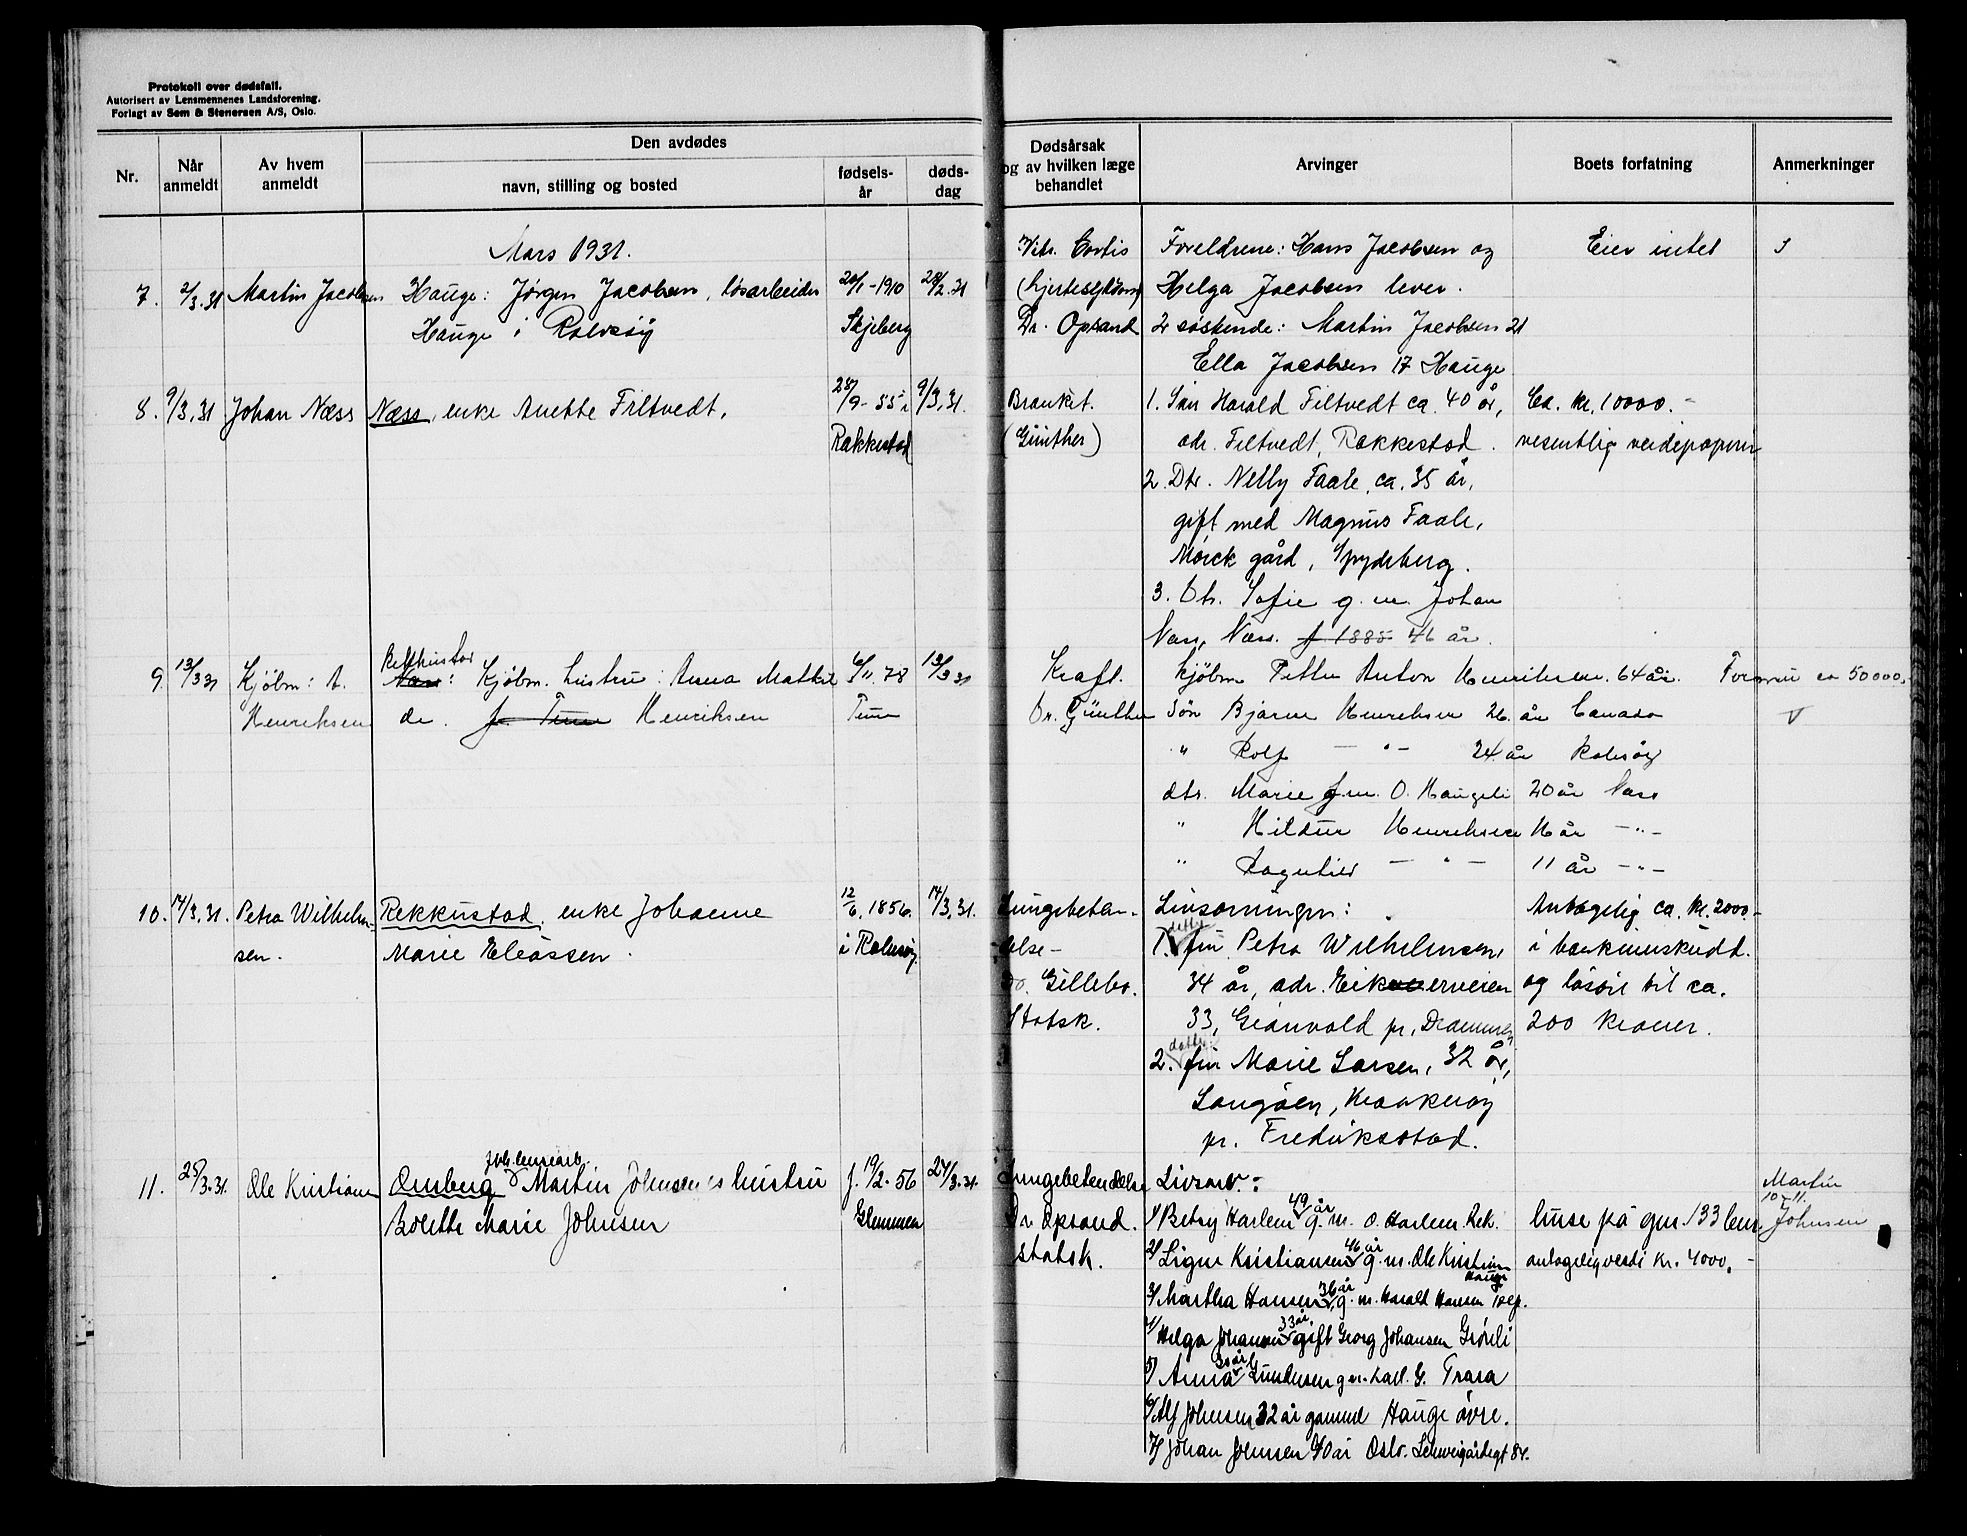 Protokoll over dødsfall.
Autorisert av Lensmennenes Landsforening.
Forlagt av Sem & Stenersen A/S, Oslo.
Nr.
Når anmeldt
Av hvem anmeldt
Den avdødes
navn, stilling og bosted
fødsels-år
døds-dag
Dødsårsak og av hvilken læge behandlet
Arvinger
Boets forfatning
Anmerkninger
Mars 1931.
7. 2/3.31 Martin Jacobsen
Hauge: Jørgen Jacobsen, løsarbeider
Hauge i Rolvsøy
20/1-1910
Skjeberg
28/2.31
Vit. Cordis
Dr. Opsand
Foreldrene: Hans Jacobsen og
Helga Jacobsen lever.
2 søskende: Martin Jacobsen 21
Ella Jacobsen 17 Hauge
Eier intet
8. 9/3.31 Johan Næss
Næss, enke Anette Filtvedt.
28/9-55 i
Rakkestad
9/3.31.
Bronkit.
(Günther)
1. Søn Harald Filtvedt ca. 40 år,
adr. Filtvedt, Rakkestad.
2. Dtr. Nelly Faale, ca. 35 år,
gift med Magnus Faale,
Mørck gård, Spydeberg.
3. Dtr. Sofie g. m. Johan
Næss, Næss. f 1885 46 år.
Ca. kr. 10000.-
vesentlig verdipapirer
9. 13/3 31 Kjøbm: A.
Henriksen
Rekkustad
Næss: Kjøbm. hustru: Anna Mathil
de. f. Tune Henriksen
6/11.78
Tune
13/3 31
Kraft.
Dr. Günther
Kjøbm Petter Anton Henriksen. 64 år.
Søn Bjarne Henriksen 26. år Canada
" Rolf — " — 24 år Rolvsøy
dtr. Marie g.m. O. Haugeli 20 år Næss
" Hildur Henriksen 16 år — " —
" Ragnhild — " — 11 år — " —
Formue ca 50000.
10. 14/3.31. Petra Wilhelm-
sen.
Rekkustad, enke Johanne
Marie Eliassen.
12/6.1856.
i Rolvsøy
14/3.31.
Lungebeten-
else-
Dr. Gillebo.
Statsk.
Livsarvinger:
1. datter fru Petra Wilhelmsen,
34 år, adr. Eikerveien
33, Grønvold pr. Drammen
2. datter fru Marie Larsen, 32 år,
Langøen, Kraakerøy
pr. Fredriksstad.
Antagelig ca. kr. 2000.-
i bankinnskudd.
og løsøre til ca.
200 kroner.
11. 25/3.31. Ole Kristiansen
Omberg Martin Johnsen's hustru
Bolette Marie Johnsen
f. 19/2.56
Glemmen
24/3.31.
Lungebetendelse
Dr Opsand.
statsk.
Livsarv.:
1) Betsy Harlem 49 år g.m. O. Harlem Rek.
2) Signe Kristiansen 46 år g.m. Ole Kristiansen
Hauge
3) Martha Hansen 36 år g.m. Harald Hansen
4) Helga Johansen 33 år gift Georg Johansen Grønli
5) Anna Gundersen 30 år g.m. Carl. G. Trara
6) Alf Johnsen 32 år gammel Hauge øvre.
7) Johan Johnsen 40 år Oslo. Schweigårdsgt 84.
huse på gnr. 133
antagelig verdi kr. 4000.-
Martin
10-11.
Johnsen